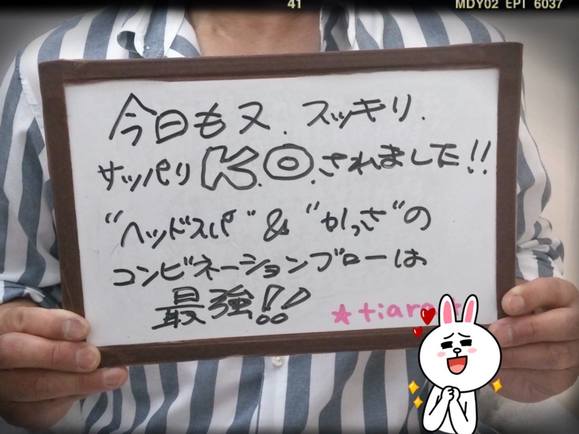 41
MDY02 EPT 6037
今日も又、スッキリ、
サッパリK.O.されました!!
"ヘッドスパ"&"かっさ"の
コンビネーションブローは
最強!!
★tiara